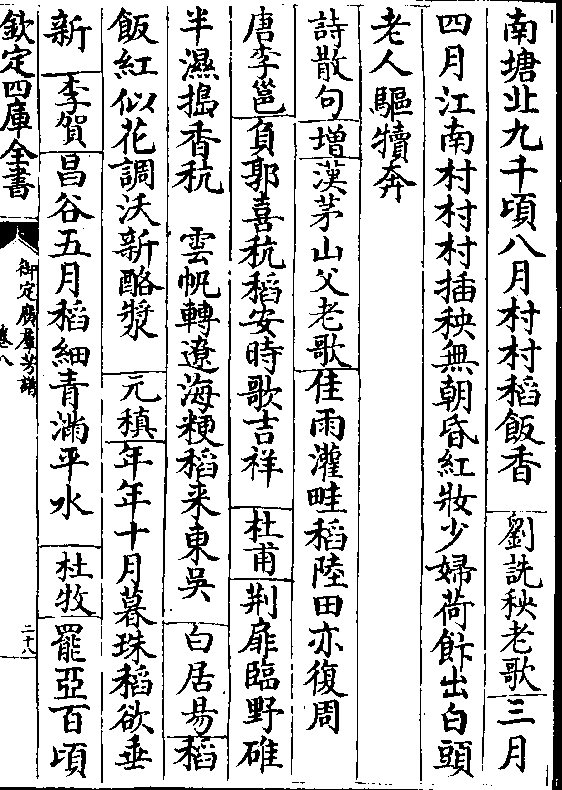 南塘北九千頃八月村村稻飯香　劉詵秧老歌三月
四月江南村村村插秧無朝昏紅妝少婦荷飰出白頭
老人驅犢奔
詩散句增漢茅山父老歌佳雨灌畦稻陸田亦復周
唐李邕負郭喜秔稻安時歌吉祥　杜甫荆扉臨野碓
半濕搗香秔　雲帆轉遼海粳稻来東吳　白居易稻
飯紅似花調沃新酪漿　元稹年年十月暮珠稻欲垂
新　李賀昌谷五月稻細青滿平水　杜牧罷亞百頃
欽定四庫全書
御定廣羣芳譜
卷八
二十八